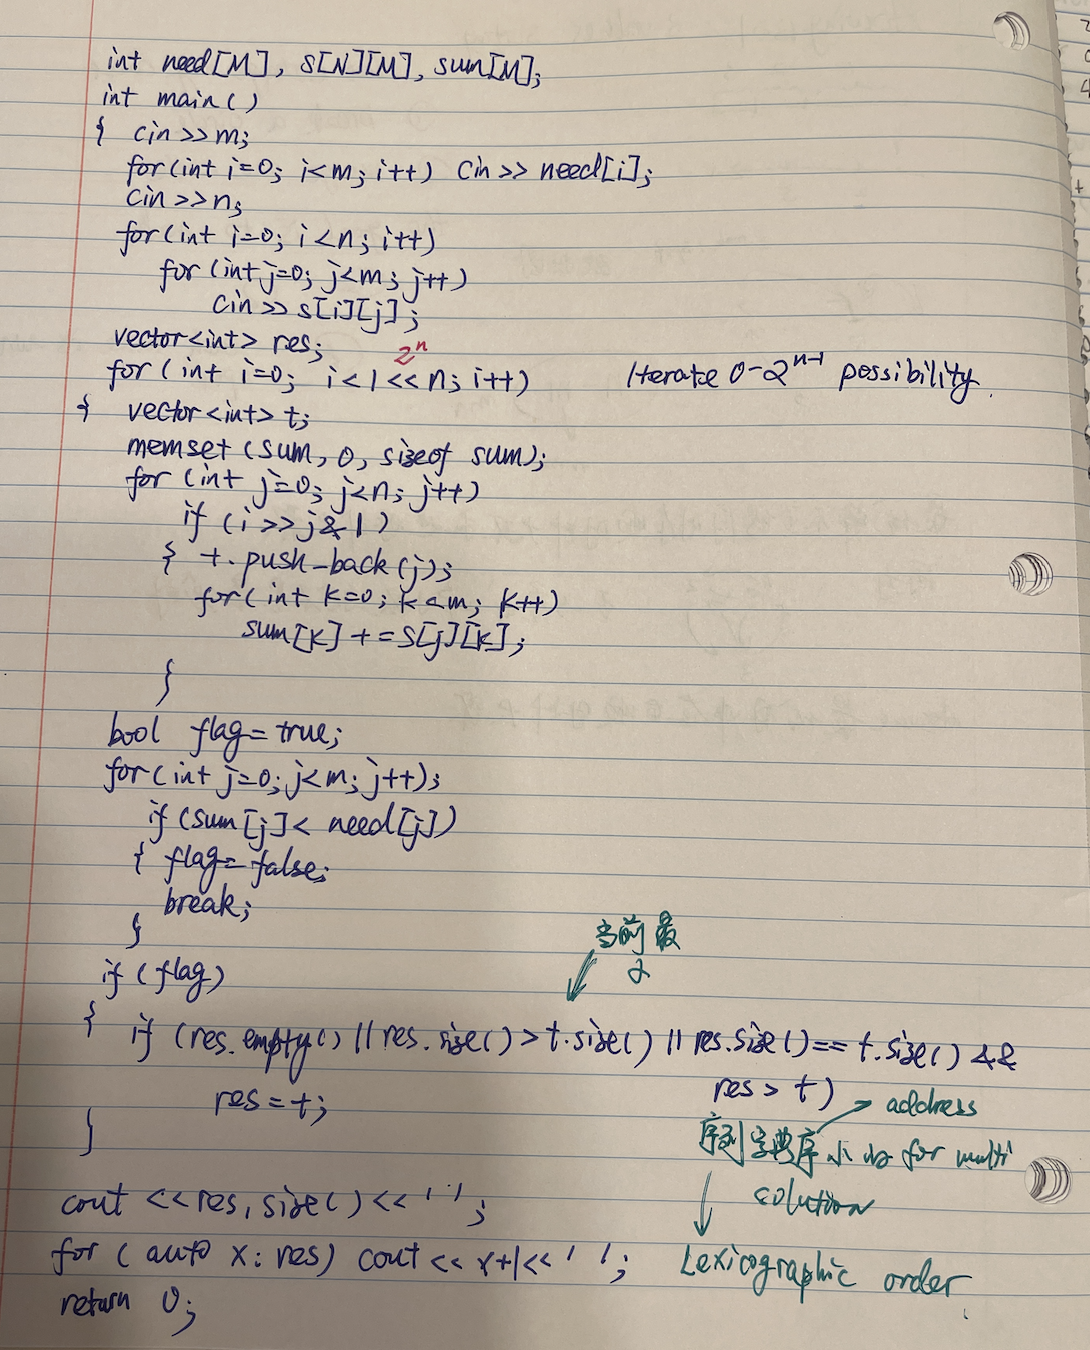 int need[M], s[N][M], sum[M];
int main()
{ cin >> m;
for(int i=0; i<m; i++) cin >> need[i];
cin >> n;
for(int i=0; i<n; i++)
for(int j=0; j<m; j++)
cin >> s[i][j];
vector<int> res;
2^n
for(int i=0; i<1<<n; i++) Iterate 0-2^n-1 possibility.
{ vector<int> t;
memset(sum, 0, sizeof sum);
for(int j=0; j<n; j++)
if (i>>j&1)
{ t.push_back(j);
for(int k=0; k<m; k++)
sum[k] += s[j][k];
}
bool flag=true;
for(int j=0; j<m; j++);
if (sum[j]< need[j])
{ flag=false;
break;
}
当前最
if (flag)
{ if (res.empty() || res.size()>t.size() || res.size()== t.size() &&
res > t)
res=t;
address
}
序列字典序小 for multi
solution
cout <<res,size()<<' ';
for (auto x: res) cout << x+1<<' ';
Lexicographic order.
return 0;